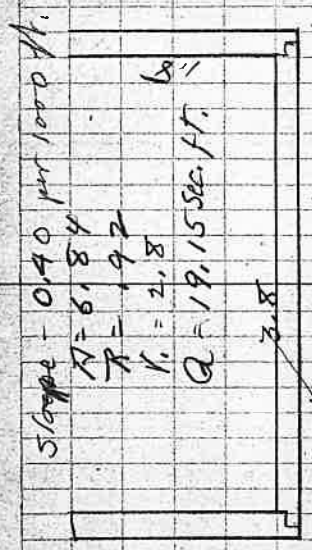 Slope - 0.40 per 1000 ft.
A = 6.84
R = .92
V. = 2.8
Q = 19.15 sec. ft.
18"
3.8